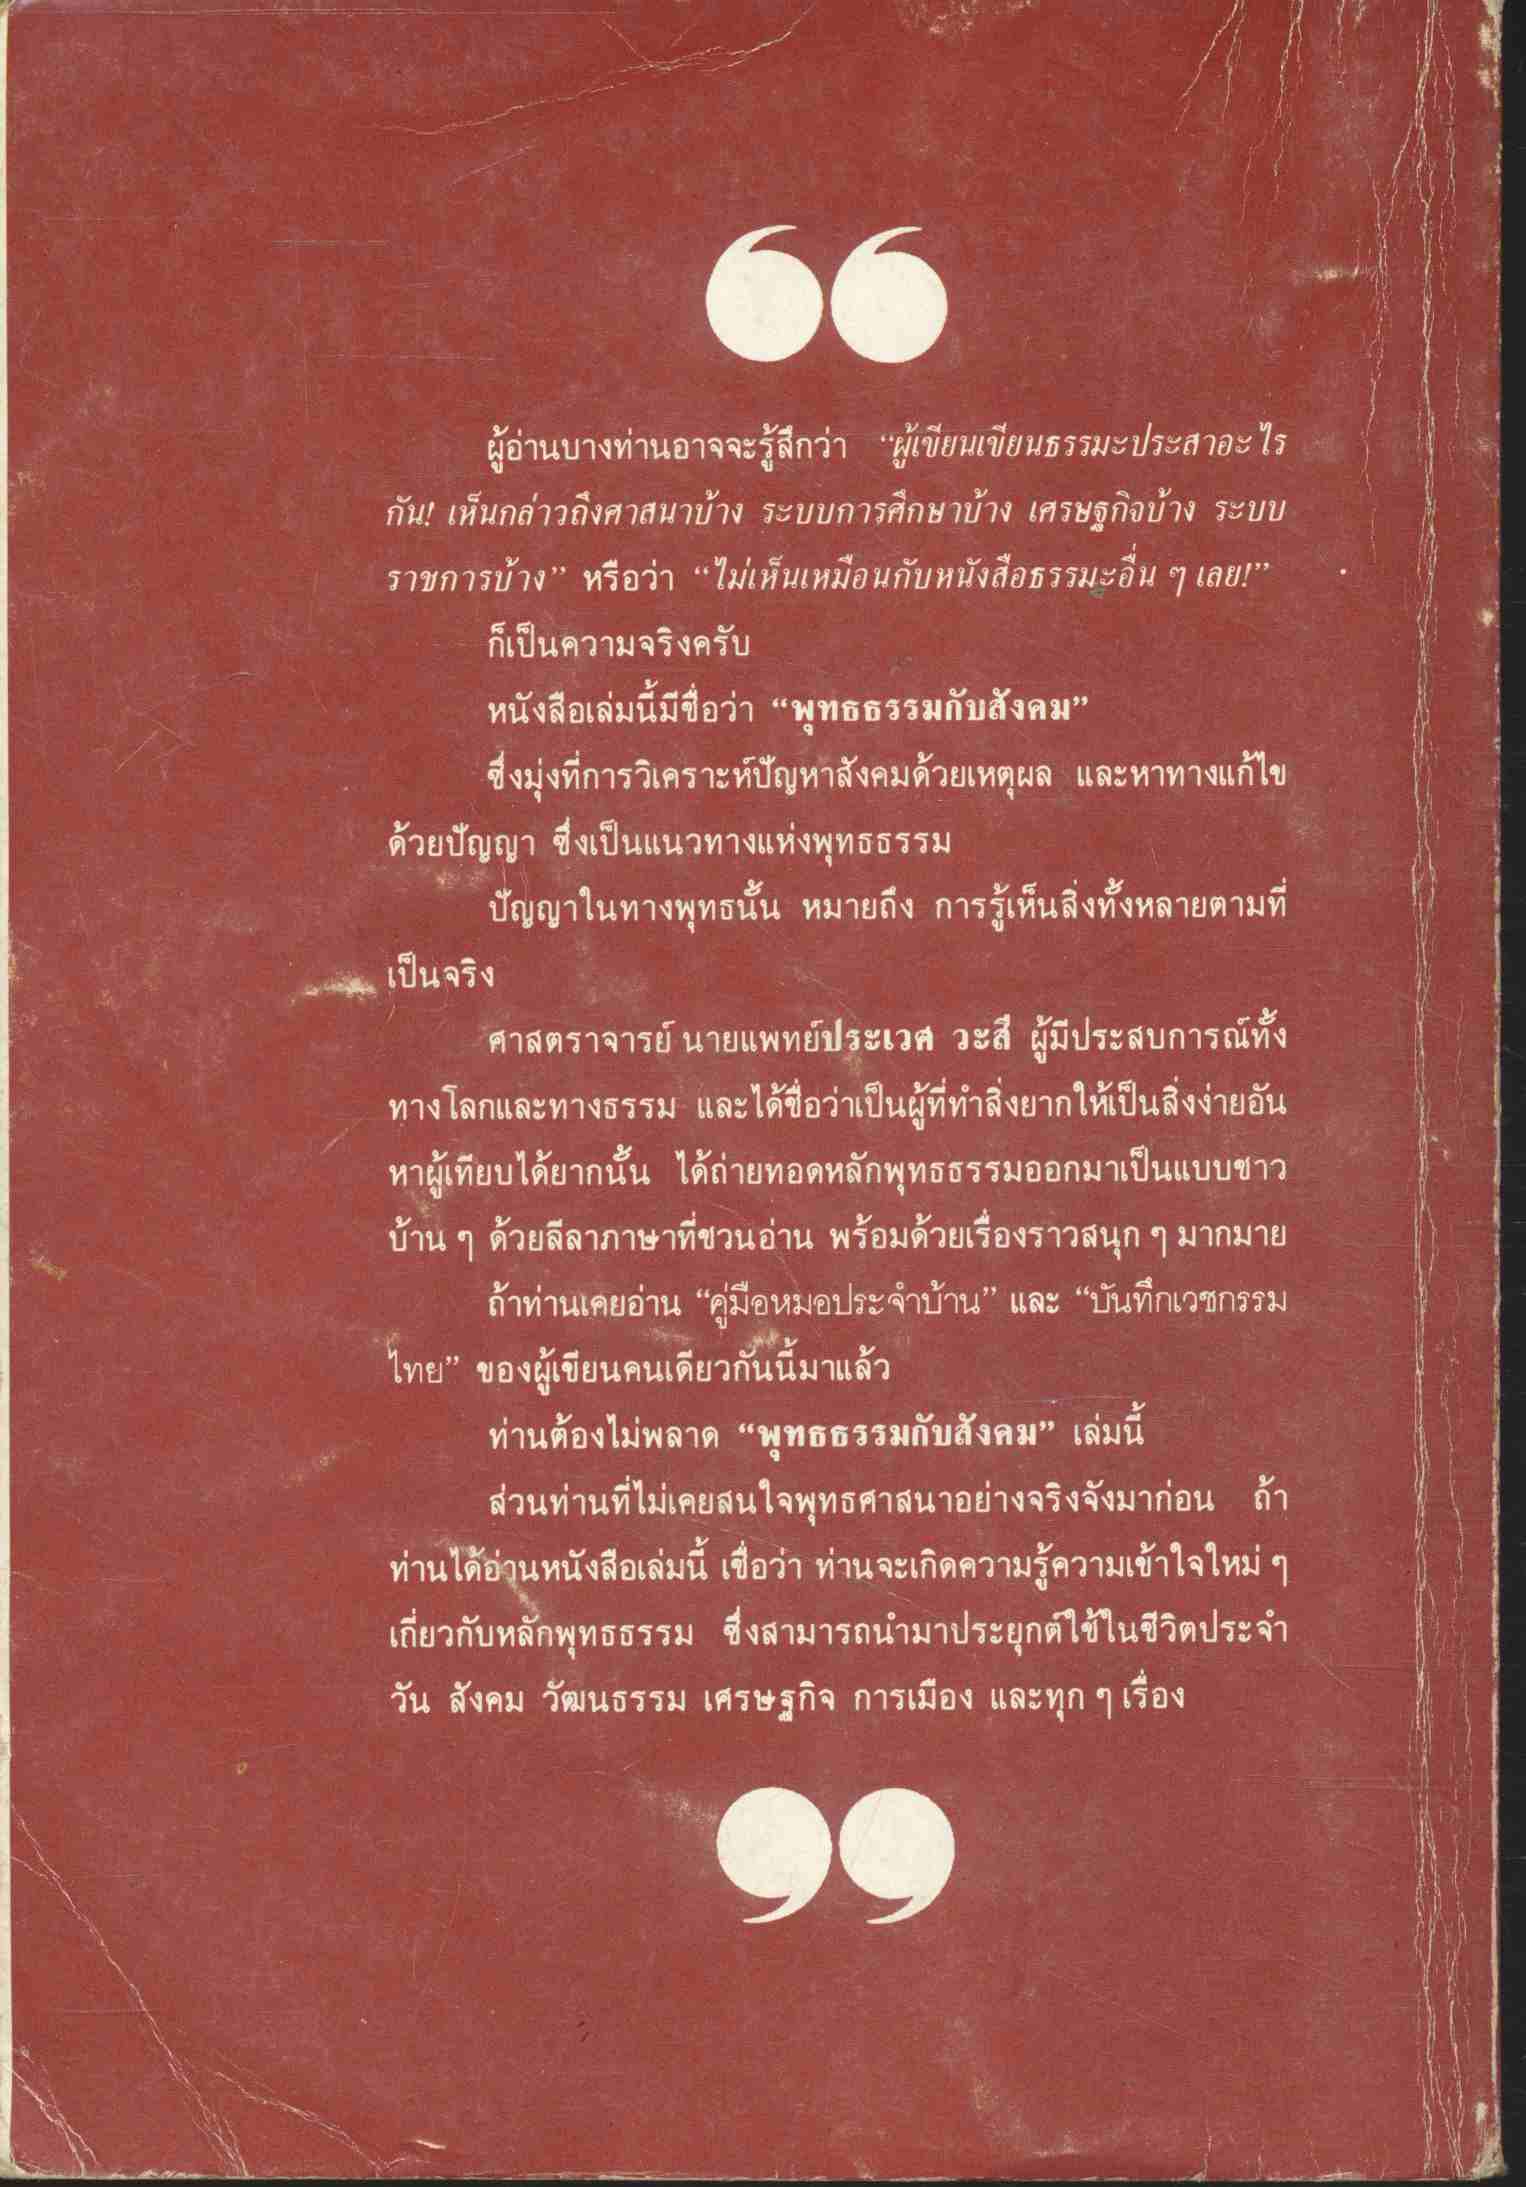 “
ผู้อ่านบางท่านอาจจะรู้สึกว่า “ผู้เขียนเขียนธรรมะประสาอะไร
กัน! เห็นกล่าวถึงศาสนาบ้าง ระบบการศึกษาบ้าง เศรษฐกิจบ้าง ระบบ
ราชการบ้าง” หรือว่า “ไม่เห็นเหมือนกับหนังสือธรรมะอื่น ๆ เลย!”
ก็เป็นความจริงครับ
หนังสือเล่มนี้มีชื่อว่า “พุทธธรรมกับสังคม”
ซึ่งมุ่งที่การวิเคราะห์ปัญหาสังคมด้วยเหตุผล และหาทางแก้ไข
ด้วยปัญญา ซึ่งเป็นแนวทางแห่งพุทธธรรม
ปัญญาในทางพุทธนั้น หมายถึง การรู้เห็นสิ่งทั้งหลายตามที่
เป็นจริง
ศาสตราจารย์ นายแพทย์ประเวศ วะสี ผู้มีประสบการณ์ทั้ง
ทางโลกและทางธรรม และได้ชื่อว่าเป็นผู้ที่ทำสิ่งยากให้เป็นสิ่งง่ายอัน
หาผู้เทียบได้ยากนั้น ได้ถ่ายทอดหลักพุทธธรรมออกมาเป็นแบบชาว
บ้าน ๆ ด้วยลีลาภาษาที่ชวนอ่าน พร้อมด้วยเรื่องราวสนุก ๆ มากมาย
ถ้าท่านเคยอ่าน “คู่มือหมอประจำบ้าน” และ “บันทึกเวชกรรม
ไทย” ของผู้เขียนคนเดียวกันนี้มาแล้ว
ท่านต้องไม่พลาด “พุทธธรรมกับสังคม” เล่มนี้
ส่วนท่านที่ไม่เคยสนใจพุทธศาสนาอย่างจริงจังมาก่อน ถ้า
ท่านได้อ่านหนังสือเล่มนี้ เชื่อว่า ท่านจะเกิดความรู้ความเข้าใจใหม่ ๆ
เกี่ยวกับหลักพุทธธรรม ซึ่งสามารถนำมาประยุกต์ใช้ในชีวิตประจำ
วัน สังคม วัฒนธรรม เศรษฐกิจ การเมือง และทุก ๆ เรื่อง
”